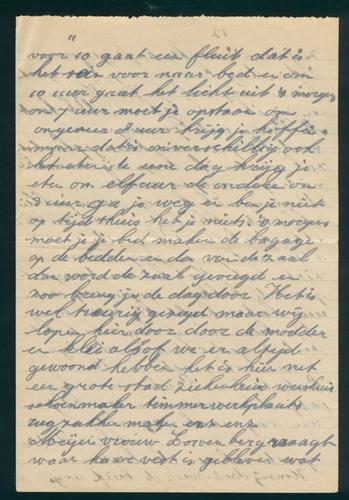 voor 10 gaat een fluit dat is
het sein voor naar bed en om
10 uur gaat het licht uit 's morgens
om 7 uur moet je opstaan om
ongeveer 8 uur krijg je koffie
dat is onverschillig ook
het eten de eene dag krijg je
eten om elf uur de andere om
3 uur ga je weg en ben je niet
op tijd thuis heb je niets. 's morgens
moet je je bed maken de bagage
op de bedden en dan word de zaal
dan word de zaal geveegd en
zoo breng je de dag door Het is
wel treurig gezegd maar wij
lopen hier door door de modder
en klei alsof we er altijd
gewoond hebben het is hier net
een grote stad ziekenhuis weeshuis
schoenmaker timmerwerkplaats
rugzakken maker enz enz
vrouw Lovenberg vraagt
waar haar vest is gebleven wat